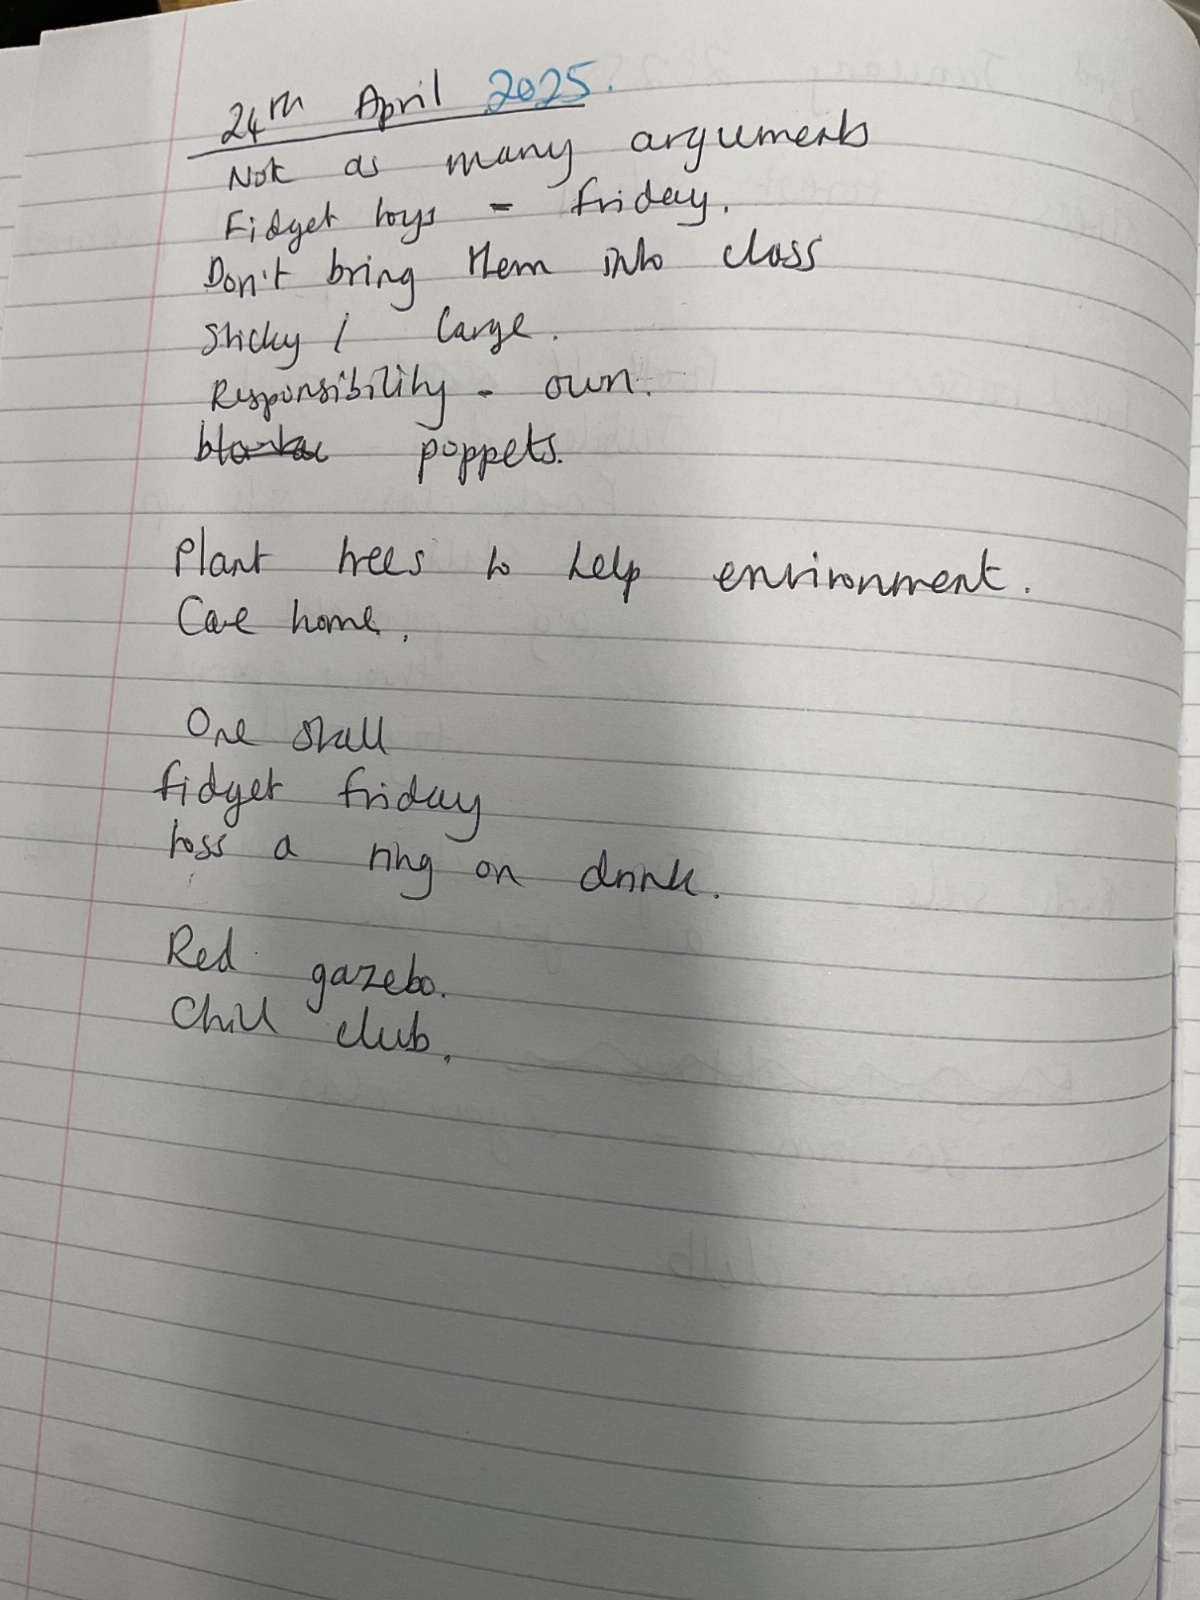 24th April 2025.
Not as many arguments
Fidget toys - friday.
Don't bring them into class
Sticky / large.
Responsibility - own.
poppets.
Plant trees to help environment.
Care home.
One stall
fidget friday
toss a ring on drink.
Red gazebo.
Chill club.